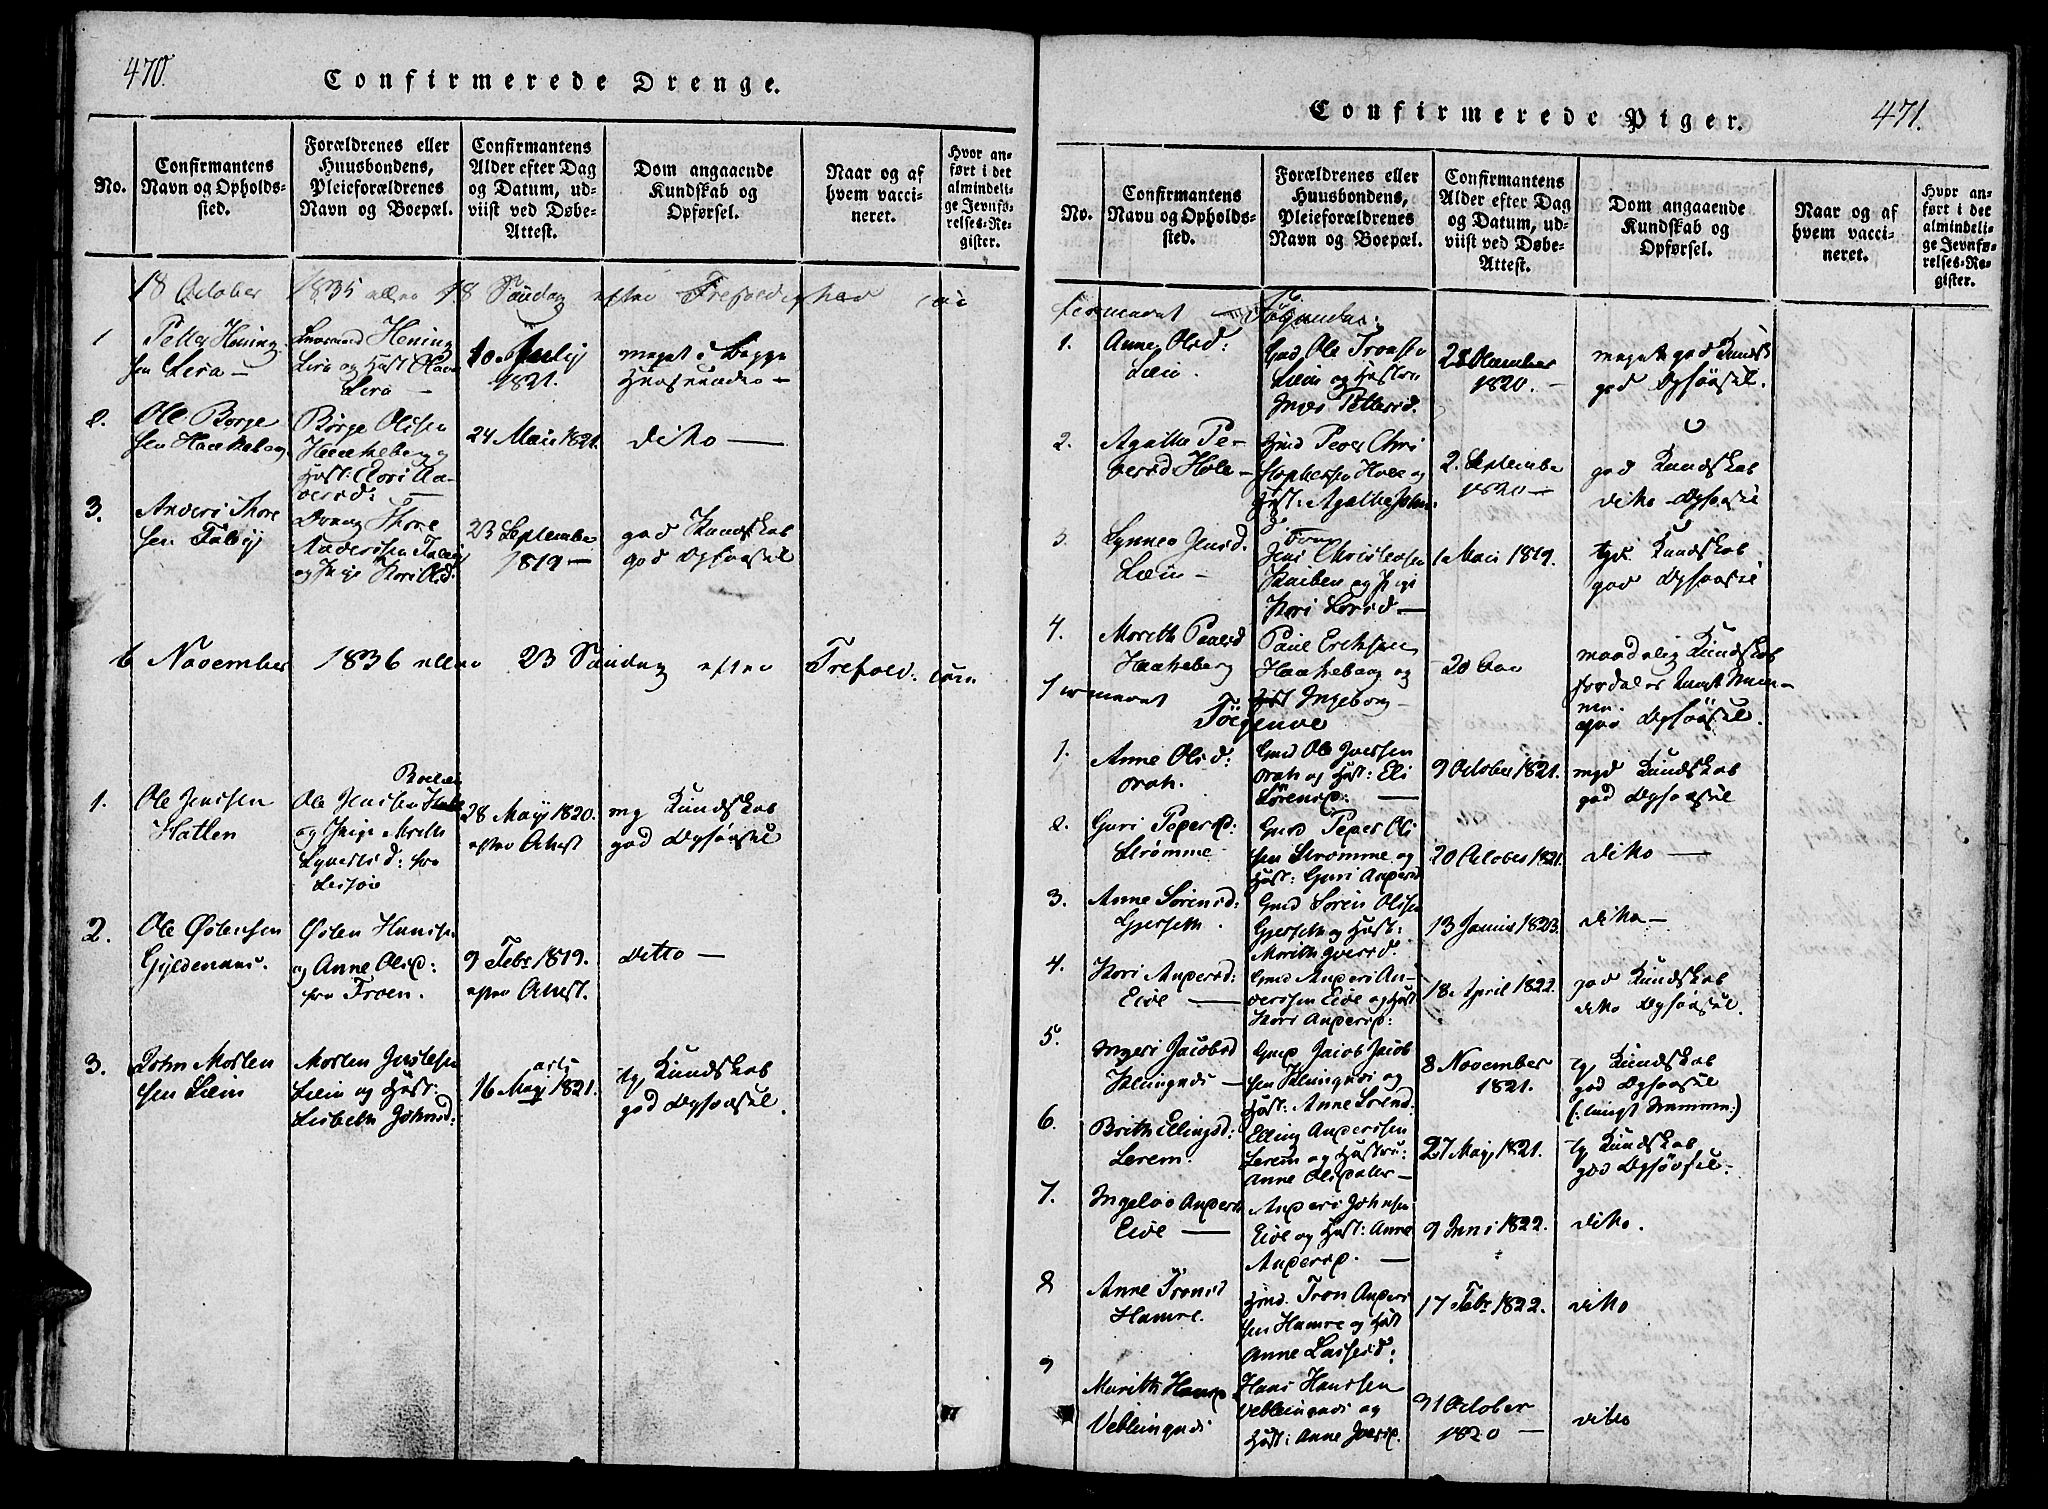 470.
Confirmerede Drenge.
No.
Confirmantens
Navn og Opholds-
sted.
Forældrenes eller
Huusbondens,
Pleieforældrenes
Navn og Boepæl.
Confirmantens
Alder efter Dag
og Datum, ud-
viist ved Døbe-
Attest.
Dom angaaende
Kundskab og
Opførsel.
Naar og af
hvem vacci-
neret.
Hvor an-
ført i det
almindeli-
ge Jevnfø-
relses-Re-
gister.
18 October 1835 eller 18 Søndag efter Trefoldighed con
1
Petter Hening
sen Lera —
Hening
Lera og Hust
Lera —
10 July
1821.
meget i Begge
Henseender —
2.
Ole Børge
sen Haakeberg
Børge Olisen
Haakeberg
Hust:
24 Mai 1821.
dito —
3.
Anders Thore
sen Talby
Thore
Andersen
og Kari Olsd:
23 Septembr
1819 —
god Kundskab
god Opførsel
6 November 1836 eller 23 Søndag efter Trefold. con
1.
Ole Jenssen
Hatlen
Ole Jenssen
og Pige
fra
28 Maji 1820.
efter Attest
mg Kundskab
god Opførsel
2.
Ole Østensen
Gyldenaas.
Østen Hanssen
og Anne Olsd:
fra Troen.
9 Febr 1819.
efter Attest.
Ditto —
3.
John Morten
sen Liein
Morten Justesen
Liein og Hust:
Lisbeth Johnsd:
16 Maji 1821.
tg Kundskab
god Opførsel.
471.
Confirmerede Piger.
No.
Confirmantens
Navn og Opholds-
sted.
Forældrenes eller
Huusbondens,
Pleieforældrenes
Navn og Boepæl.
Confirmantens
Alder efter Dag
og Datum, ud-
viist ved Døbe-
Attest.
Dom angaaende
Kundskab og
Opførsel.
Naar og af
hvem vacci-
neret.
Hvor an-
ført i det
almindeli-
ge Jevnfø-
relses-Re-
gister.
firmeret Følgende:
1.
Anne Olsd:
Liein.
Gmd Ole Tronsen
Liein og Hustru
Pettersd.
1820. —
meget god Kundsk
god Opførsel.
2.
Agathe Pe-
dersd Hole —
Gmd Peder Chri
stophersen Hole og
Hust: Agathe
2. Septembr
1820 —
god Kundskab
dito Opførsel
3
Synnev Jensd.
Liein —
Jens Christensen
og Pige
Kari
1 Mai 1819.
tg Kundskab
god Opførsel
4.
Marith Paulsd
Haakeberg
Paul Erichsen
Haakeberg og
Hust Ingeborg —
20 Aar
maadelig Kundskab
god Opførsel.
firmeret Følgende
1.
Anne Olsd:
Orah.
Gmd Ole Iversen
Orah og Hust: Eli
Sørensd: —
9 October 1821.
mgd Kundskab
god Opførsel
2.
Guri Pedersd:
Strømme
Gmd Peder Oli
sen Strømme og
Hust: Guri Andersd
20 October 1821.
dito —
3.
Anne Sørensd:
Gjerseth.
Gmd Søren Olisen
Gjerseth og Hust:
Marith Iversd.
13 Junii 1823.
dito —
4.
Kari Andersd:
Eide —
Gmd Anders An-
dersen Eide og Hust
Kari Andersd:
18. April 1822.
god Kundskab
dito Opførsel.
5.
Ingeri Jacobsd
Klungnes —
Gmd Jacob Jacob
sen Klungnes og
Hust: Anne Sørensd:
8 November
1821.
tg Kundskab
god Opførsel
6.
Brith Ellingsd:
Lerem.
Elling Anderssen
Lerem og Hustru:
Anne Olsdatter —
27 Maji 1821.
tg Kundskab
god Opførsel.
7.
Andersd
Eide —
Anders Johnsen
Eide og Hust: Anne
Andersd. —
9 Juni 1822.
dito.
8
Anne Tronsd
Hamre.
Gmd. Tron Anders
sen Hamre og Hust
Anne Lassesd:
17 Febr 1822.
dito
9
Marith Hansd
Veblungnes
Hans Hanssen
Veblungnes og
Hust: Anne Iversd.
31 October
1820 —
dito